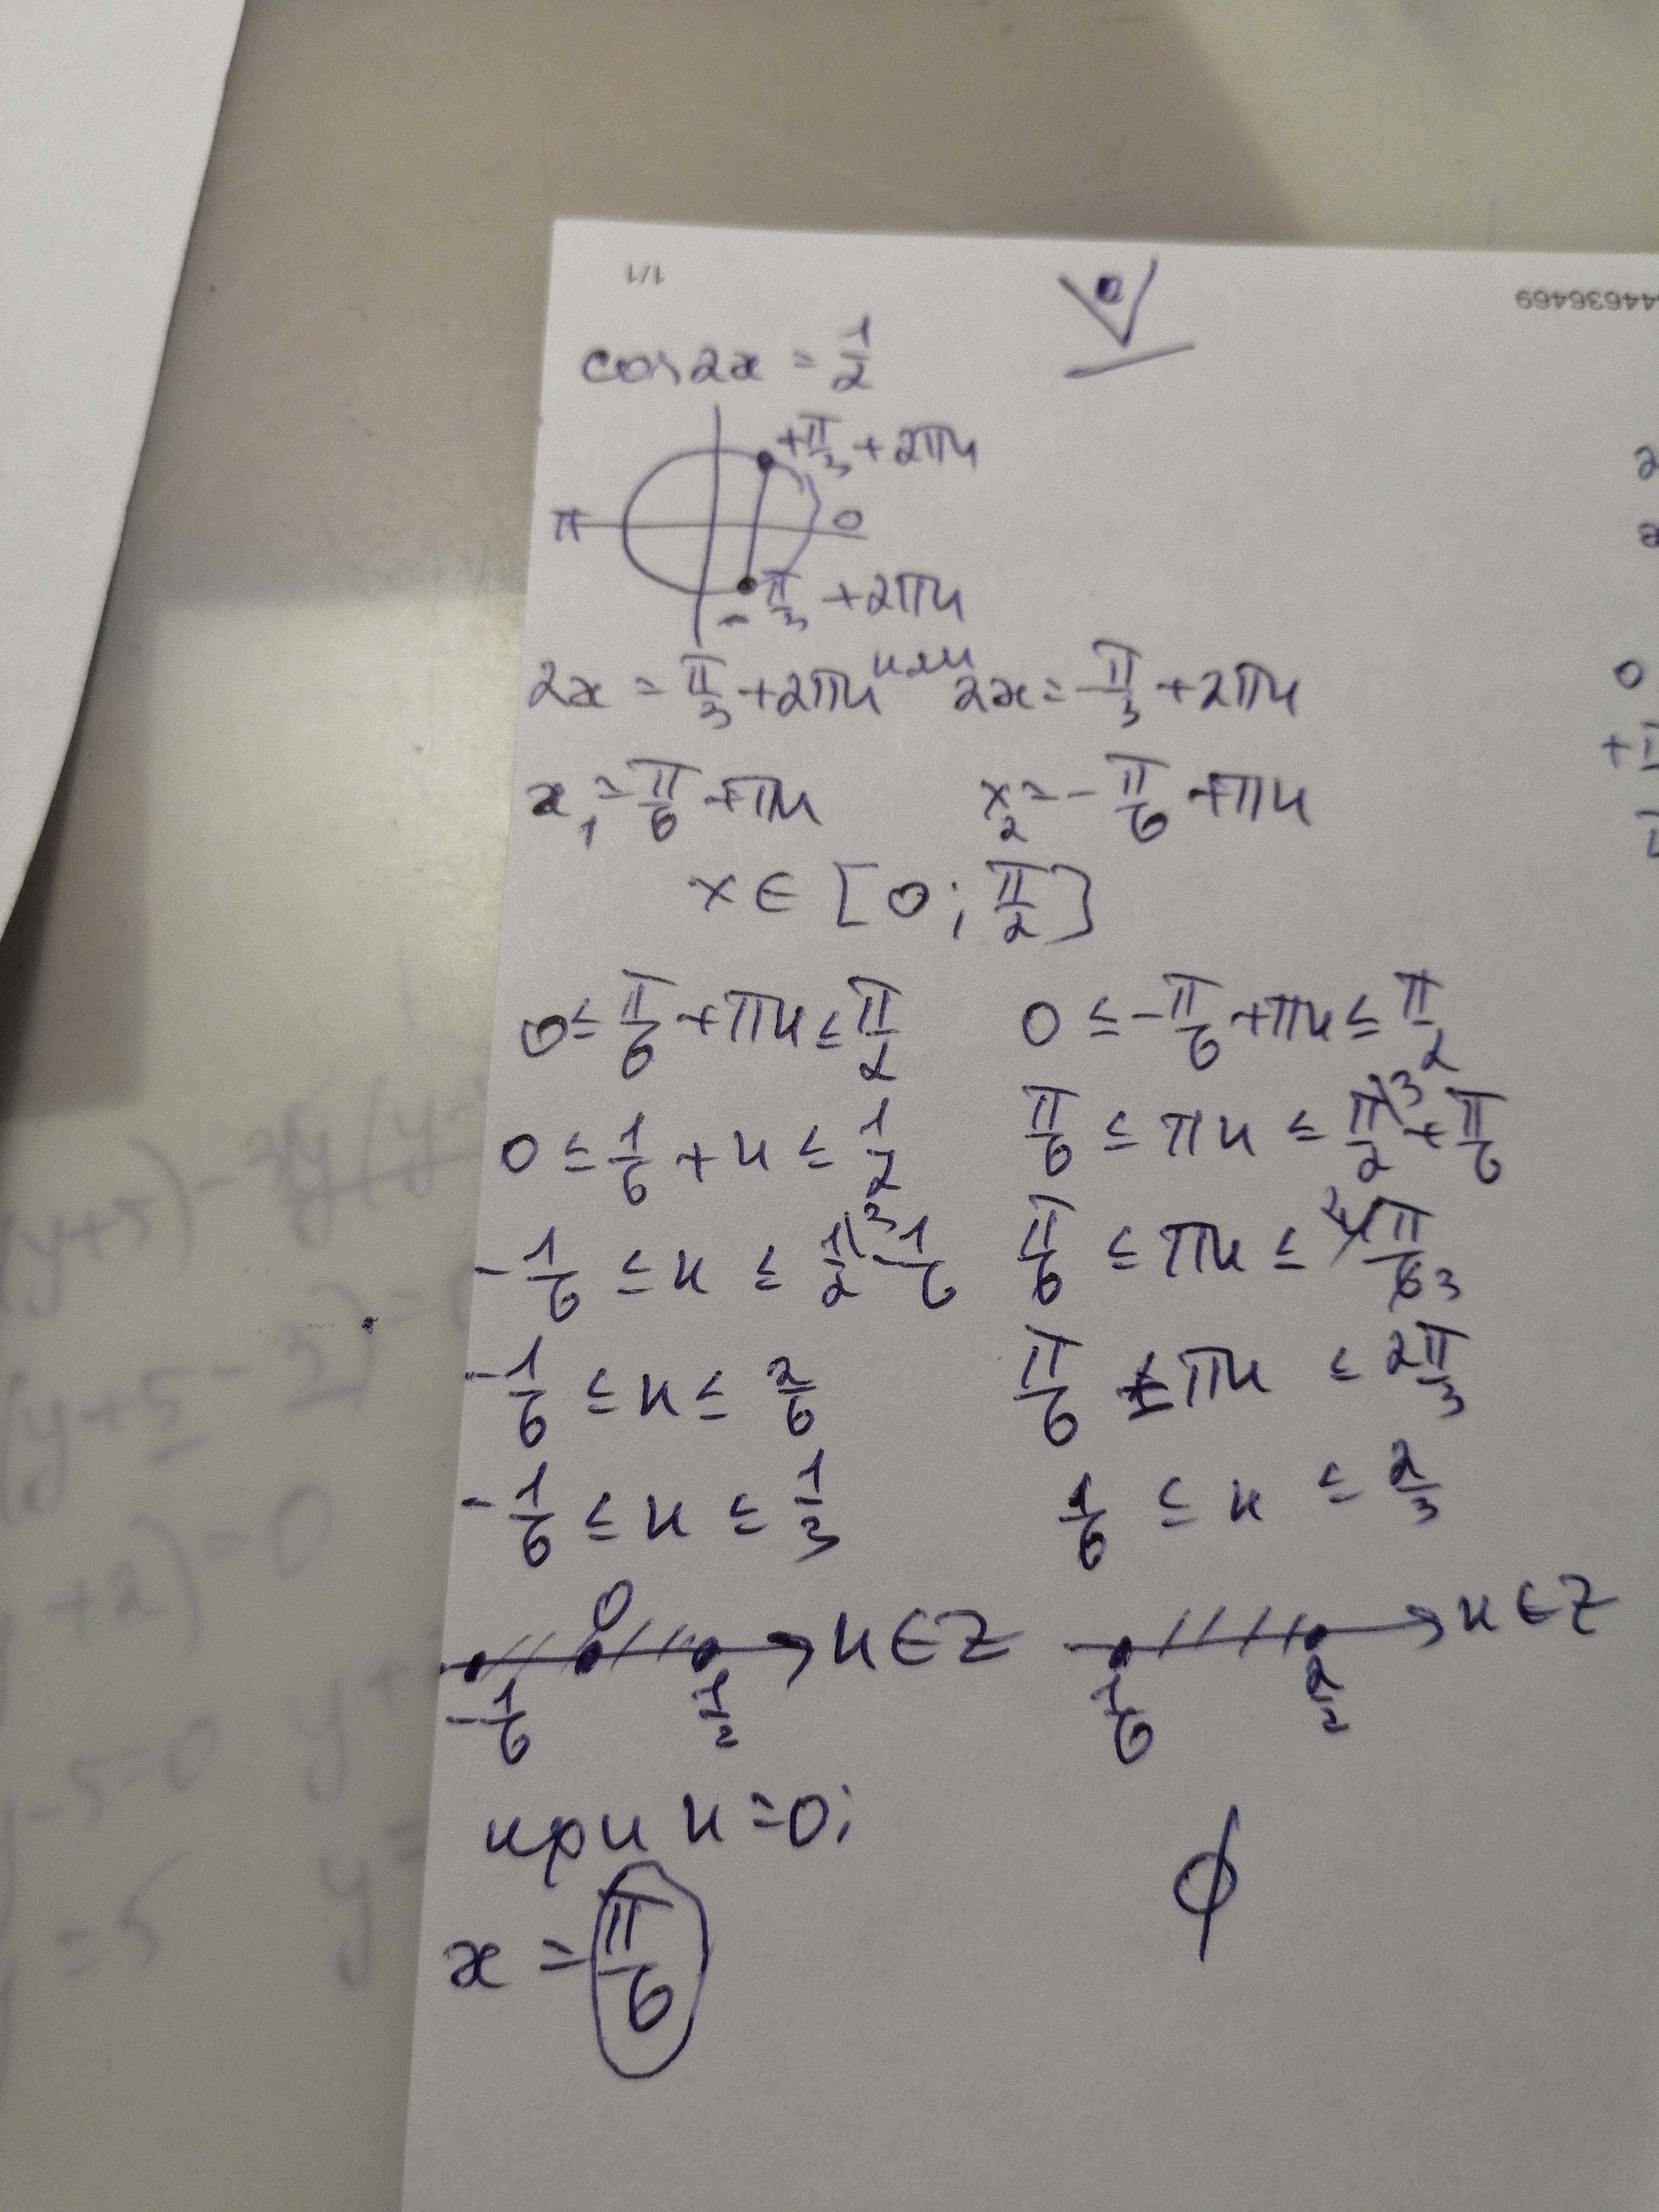 1/1
44636469
cos 2x = 1/2
+π/3 + 2πn
π 0
-π/3 + 2πn
2x = π/3 + 2πn или 2x = -π/3 + 2πn
x₁ = π/6 + πn x₂ = -π/6 + πn
x ∈ [0; π/2]
0 ≤ π/6 + πn ≤ π/2 0 ≤ -π/6 + πn ≤ π/2
0 ≤ 1/6 + n ≤ 1/2 π/6 ≤ πn ≤ π/2 \3 + π/6
-1/6 ≤ n ≤ 1/2 \3 - 1/6 π/6 ≤ πn ≤ 2 4π/6 3
-1/6 ≤ n ≤ 2/6 π/6 ≤ πn ≤ 2π/3
-1/6 ≤ n ≤ 1/3 1/6 ≤ n ≤ 2/3
0 n ∈ Z n ∈ Z
-1/6 1/2 1/6 2/2
при n = 0; ϕ
x = π/6
(y+5) - 3y(y-
(y+5-3) = 0
+2) = 0
-5=0 y+
=5 y=